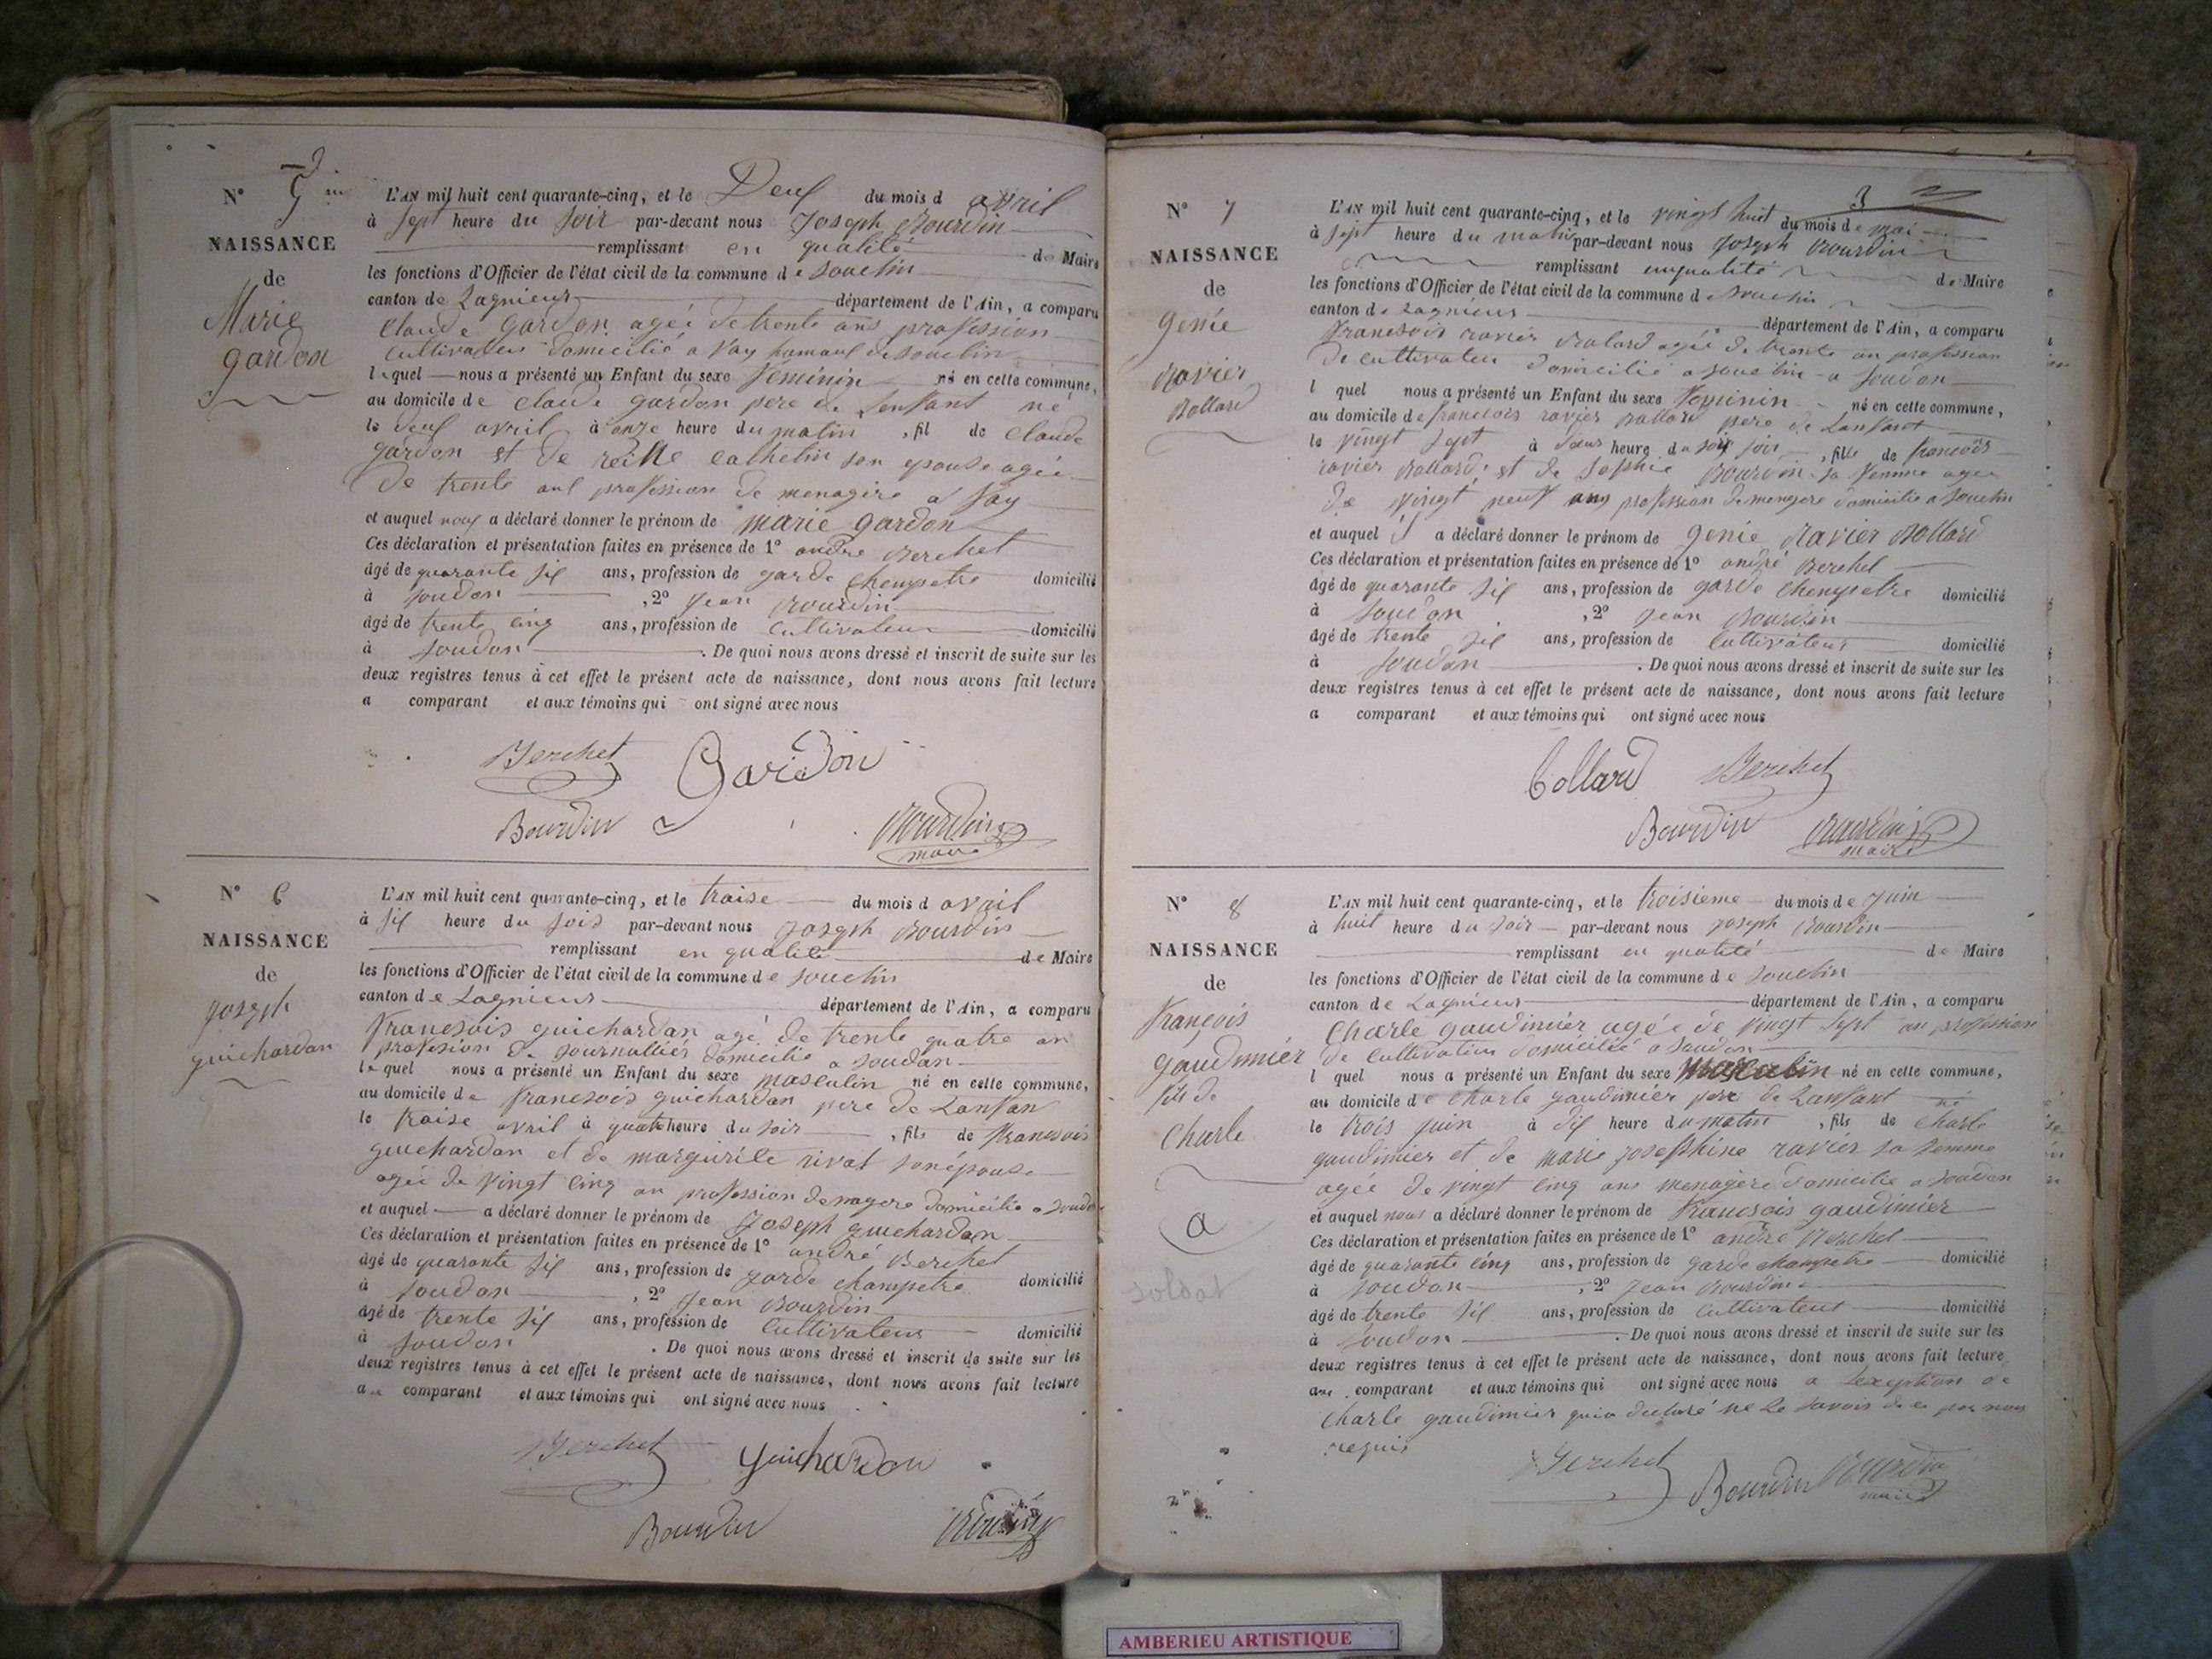 N° 5
NAISSANCE
de
Marie
gardon
L'AN mil huit cent quarante-cinq, et le Deux du mois d avril
à sept heure du soir par-devant nous Joseph Bourdin
remplissant en qualité de Maire
les fonctions d'Officier de l'état civil de la commune de Souclin
canton de Lagnieux département de l'Ain, a comparu
Claude gardon agée de trente ans profession
cultivateur domicilié a Soudon
lequel nous a présenté un Enfant du sexe feminin né en cette commune,
au domicile de claude gardon pere de Lenfant né
le deux avril à onze heure du matin, fil de Claude
gardon et de cathelin son epouse agée
de trente ans profession de menagire a
et auquel nous a déclaré donner le prénom de marie gardon
Ces déclaration et présentation faites en présence de 1° andré Berchet
âgé de quarante six ans, profession de garde chempetre domicilié
à soudon, 2° Jean Bourdin
âgé de trente cinq ans, profession de Cultivateur domicilié
à soudon. De quoi nous avons dressé et inscrit de suite sur les
deux registres tenus à cet effet le présent acte de naissance, dont nous avons fait lecture
a comparant et aux témoins qui ont signé avec nous
Berchet Gardon
Bourdin Bourdin
maire
N° 6
NAISSANCE
de
Joseph
guichardon
L'AN mil huit cent quarante-cinq, et le traise du mois d avril
à six heure du soir par-devant nous Joseph Bourdin
remplissant en qualité de Maire
les fonctions d'Officier de l'état civil de la commune de souclin
canton de Lagnieux département de l'Ain, a comparu
francsois guichardon agé de trente quatre an
profesion de Journallier domicilie a soudon
lequel nous a présenté un Enfant du sexe masculin né en cette commune,
au domicile de francsois guichardon pere de Lanfan
le traise avril à quatre heure du soir, fils de francsois
guichardon et de margurite rivat son épouse
agée de vingt cinq an profession domicilie a soudon
et auquel a déclaré donner le prénom de Joseph guichardon
Ces déclaration et présentation faites en présence de 1° andré Berchet
âgé de quarante six ans, profession de garde champetre domicilié
à soudon, 2° Jean Bourdin
âgé de trente six ans, profession de Cultivateur domicilié
à soudon. De quoi nous avons dressé et inscrit de suite sur les
deux registres tenus à cet effet le présent acte de naissance, dont nous avons fait lecture
au comparant et aux témoins qui ont signé avec nous
Berchet guichardon
Bourdin Bourdin
3
N° 7
NAISSANCE
de
genie
Ravier
Bollard
L'AN mil huit cent quarante-cinq, et le vingt huit du mois de mai
à sept heure du matin par-devant nous Joseph Bourdin
remplissant enqualité de Maire
les fonctions d'Officier de l'état civil de la commune d Souclin
canton de Lagnieux département de l'Ain, a comparu
francsois ravier Bolard agéé de trente an profession
de cultivateu domicilié a souclin a soudon
l quel nous a présenté un Enfant du sexe feminin né en cette commune,
au domicile de francois ravier Bollard pere de Lanfant
le vingt sept à deux heure du soir, fille de francois
ravier Bollard et de Sophie Bourdin sa femme agee
de vingt neuf ans profession de menagere domicilie a souclin
et auquel il a déclaré donner le prénom de genie Ravier Bollard
Ces déclaration et présentation faites en présence de 1° andré Berchet
âgé de quarante six ans, profession de garde Chempetre domicilié
à soudon, 2° Jean Bourdin
âgé de trente six ans, profession de Cultivateur domicilié
à soudon. De quoi nous avons dressé et inscrit de suite sur les
deux registres tenus à cet effet le présent acte de naissance, dont nous avons fait lecture
a comparant et aux témoins qui ont signé avec nous
Bollard Berchet
Bourdin Bourdin
maire
N° 8
NAISSANCE
de
françois
gaudimier
fils de
Charle
a
soldat
L'AN mil huit cent quarante-cinq, et le troisieme du mois de Juin
à huit heure du soir par-devant nous Joseph Bourdin
remplissant en qualité de Maire
les fonctions d'Officier de l'état civil de la commune de souclin
canton de Lagnieux département de l'Ain, a comparu
Charle gaudimier agée de vingt sept an profession
de cultivateur domicilié a soudon
l quel nous a présenté un Enfant du sexe masculin né en cette commune,
au domicile de Charle gaudimier pere de Lanfant né
le trois juin à dix heure du matin, fils de Charle
gaudimier et de marie josephine ravier sa femme
agée de vingt cinq ans menagere domicilie a soudon
et auquel nous a déclaré donner le prénom de francsois gaudimier
Ces déclaration et présentation faites en présence de 1° andré Berchet
âgé de quarante cinq ans, profession de garde champetre domicilié
à soudon, 2° Jean Bourdin
âgé de trente six ans, profession de Cultivateur domicilié
à soudon. De quoi nous avons dressé et inscrit de suite sur les
deux registres tenus à cet effet le présent acte de naissance, dont nous avons fait lecture
au comparant et aux témoins qui ont signé avec nous a Lexception de
Charle gaudimier qui a declaré ne Le savoir de ce par nous
requis
Berchet Bourdin Bourdin
maire
AMBERIEU ARTISTIQUE